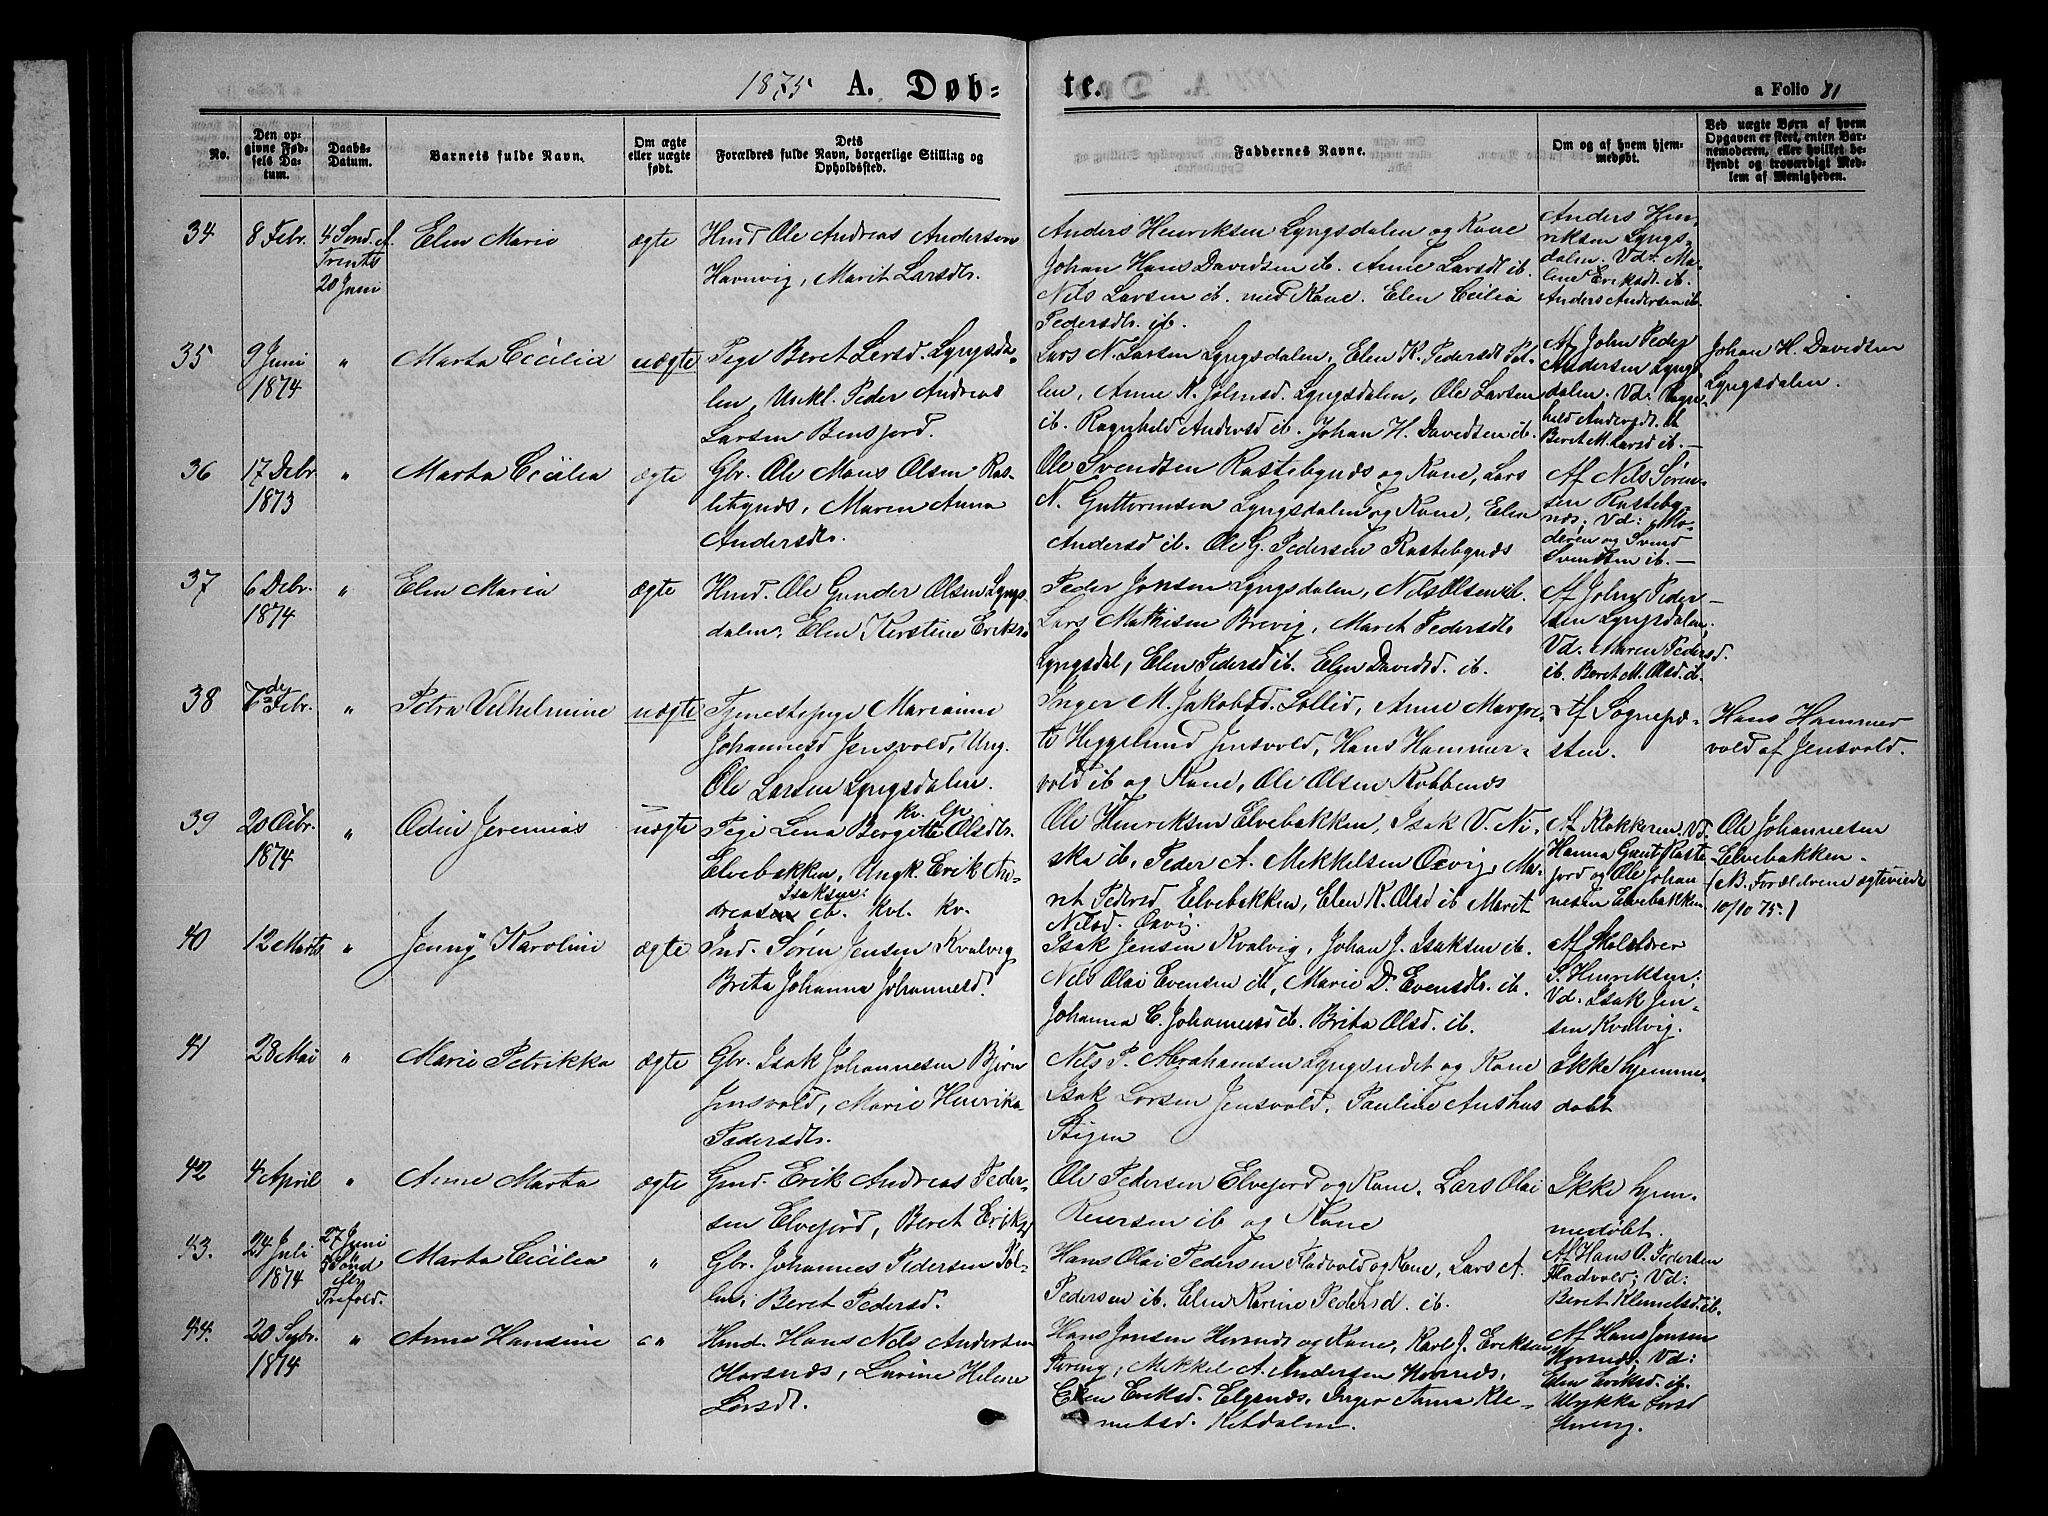 1875 A. Døb=
te.
a Folio 81
No.
Den op=
givne Fød=
sels Da=
tum.
Daabs=
Datum.
Barnets fulde Navn.
Om ægte
eller uægte
født.
Dets
Forældres fulde Navn, borgerlige Stilling og
Opholdssted.
Faddernes Navne.
Om og af hvem hjem=
medøbt.
Ved uægte Børn af hvem
Opgaven er skeet, enten Bar=
nemoderen, eller hvilket be=
kjendt og troværdigt Med=
lem af Menigheden.
34
8 Febr.
4 Sond. e.
Trinits
20 Juni
Elen Marie
ægte
Hmd Ole Andreas Andersen
Havnvig, Marit Larsdtr.
Anders Henriksen Lyngsdalen og Kone
Johan Hans Davidsen ib. Anne Larsdt ib.
Nils Larsen ib. med Kone. Elen Cecilia
Pedersdtr. ib.
Anders Hen-
riksen Lyngs-
dalen. Vd: Ma-
lene Eriksdt. ib.
Anders Andersen ib.
35
9 Juni
1874
"
Marta Cecilia
uægte
Pige Beret Larsd. Lyngsda-
len, Unkl. Peder Andreas
Larsen Bensjord.
Lars N. Larsen Lyngsdalen, Elen K. Pedersdt Pol-
len, Anne K. Johnsd. Lyngsdalen, Ole Larsen
ib. Ragnhild Andersd ib. Johan H. Davidsen ib.
Af John Peder
Andersen Lyngs
dalen. Vd: Ragn-
hild Andersdt. ib
Beret M. Larsd ib.-
Johan H. Davidsen
Lyngsdalen.
36
17 Debr
1873
"
Marta Cecilia
ægte
Gbr. Ole Mons Olsen Ras-
tebynds, Maren Anna
Andersdtr.
Ole Svendsen Rastebynds og Kone, Lars
N. Guttormsen Lyngsdalen og Kone, Elen
Andersd ib. Ole G. Pedersen Rastebynds
Af Nils Søren-
sen Rasteby-
nds; Vd: Mo-
deren og Svend
Svendsen ib.-
37
6 Debr.
1874
"
Elen Maria
ægte
Hmd. Ole Gunder Olsen Lyngs-
dalen, Elen Kerstine Eriksd
Peder Jonsen Lyngsdalen, Nils Olsen ib.
Lars Mathisen Brevig, Maret Pedersdtr
Lyngsdal, Elen Pedersd ib. Elen Davidsd. ib.
Af John Peder-
sen Lyngsdalen;
Vd: Maren Pedersd.
ib. Beret M. Olsd. ib.
38
7de Febr.
"
Petra Vilhelmine
uægte
Tjenestepige Marianne
Johannesd Jensvold, Ung.
Ole Larsen Lyngsdalen.
Inger M. Jakobsd. Sollid, Anne Margre-
te Heggelund Jensvold, Hans Hammer-
vold ib og Kone, Ole Olsen Kobbenæs
Af Sognepræ-
sten.
Hans Hammer
vold af Jensvold.
39
20 Octbr.
1874
"
Odin Jeremias
uægte
kv. Lp
Pige Lena Bergette Olsdtr.
Elvebakken, Ungk. Erik An-
Isaksen:
dreas ib. kvl. kv.
Ole Henriksen Elvebakken, Isak V. Ni-
ska ib, Peder A. Mikkelsen Oxvig, Ma-
rit Pedersd Elvebakken, Elen K. Olsd ib Marit
Nilsd. Oxvig.
Af Klokkeren. Vd.
Hanna Gant Raste-
fjord og Ole Johan
nesen Elvebakken
Ole Johannesen
Elvebakken.
(NB. Forældrene ægteviede
10/10 75.)
40
12 Marts
"
Jenny Karoline
ægte
Ind. Søren Jensen Kvalvig
Brita Johanna Johannesd.
Isak Jensen Kvalvig, Johan J. Isaksen ib.
Nils Olai Evensen ib, Marie D. Evensdtr. ib.
Johanna C. Johannesd ib. Brita Olsd. ib.
Af Skolelærer
S. Henriksen;
Vd. Isak Jen-
sen Kvalvig.
41
28 Mai
"
Marie Petrikka
ægte
Gbr. Isak Johannesen Bjørn
Jensvold, Marie Henrika
Pedersdtr.
Nils P. Abrahamsen Lyngseidet og Kone
Isak Larsen Jensvold. Pauline Aushus
Stigen
Ikke hjemme-
døbt
42
4 April
"
Anne Marta
ægte
Gmd. Erik Andreas Peder-
sen Elvejord, Beret Eriksd
Ole Pedersen Elvejord og Kone, Lars Olai
Reiersen ib og Kone
Ikke hjem-
medøbt.
43.
24 Juli
1874
27 Juni
5 Sond
eft.
Trefold.
Marta Cecilia
"
Gbr. Johannes Pedersen Pol-
len; Beret Pedersd.
Hans Olai Pedersen Fladvold og Kone, Lars A.
Pedersen ib. Elen Karine Pedersd. ib.
Af Hans O. Pedersen
Fladvold; Vd:
Beret Klemetsd. ib.
44.
20 Sepbr.
1874
"
Anne Hansine
"
Hmd. Hans Nils Andersen
Horsnæs, Larine Helene
Larsdt.
Hans Jensen Horsnæs og Kone, Karl J. Eriksen
Mikkel A. Andersen Horsnæs,
Elen Eriksd. Elsnæs, Inger Anna Kle-
metsd. Kitdalen.
Af Hans Jensen
Horsnæs. Vd:
Elen Eriksd. ib.
Ulrikka Larsd